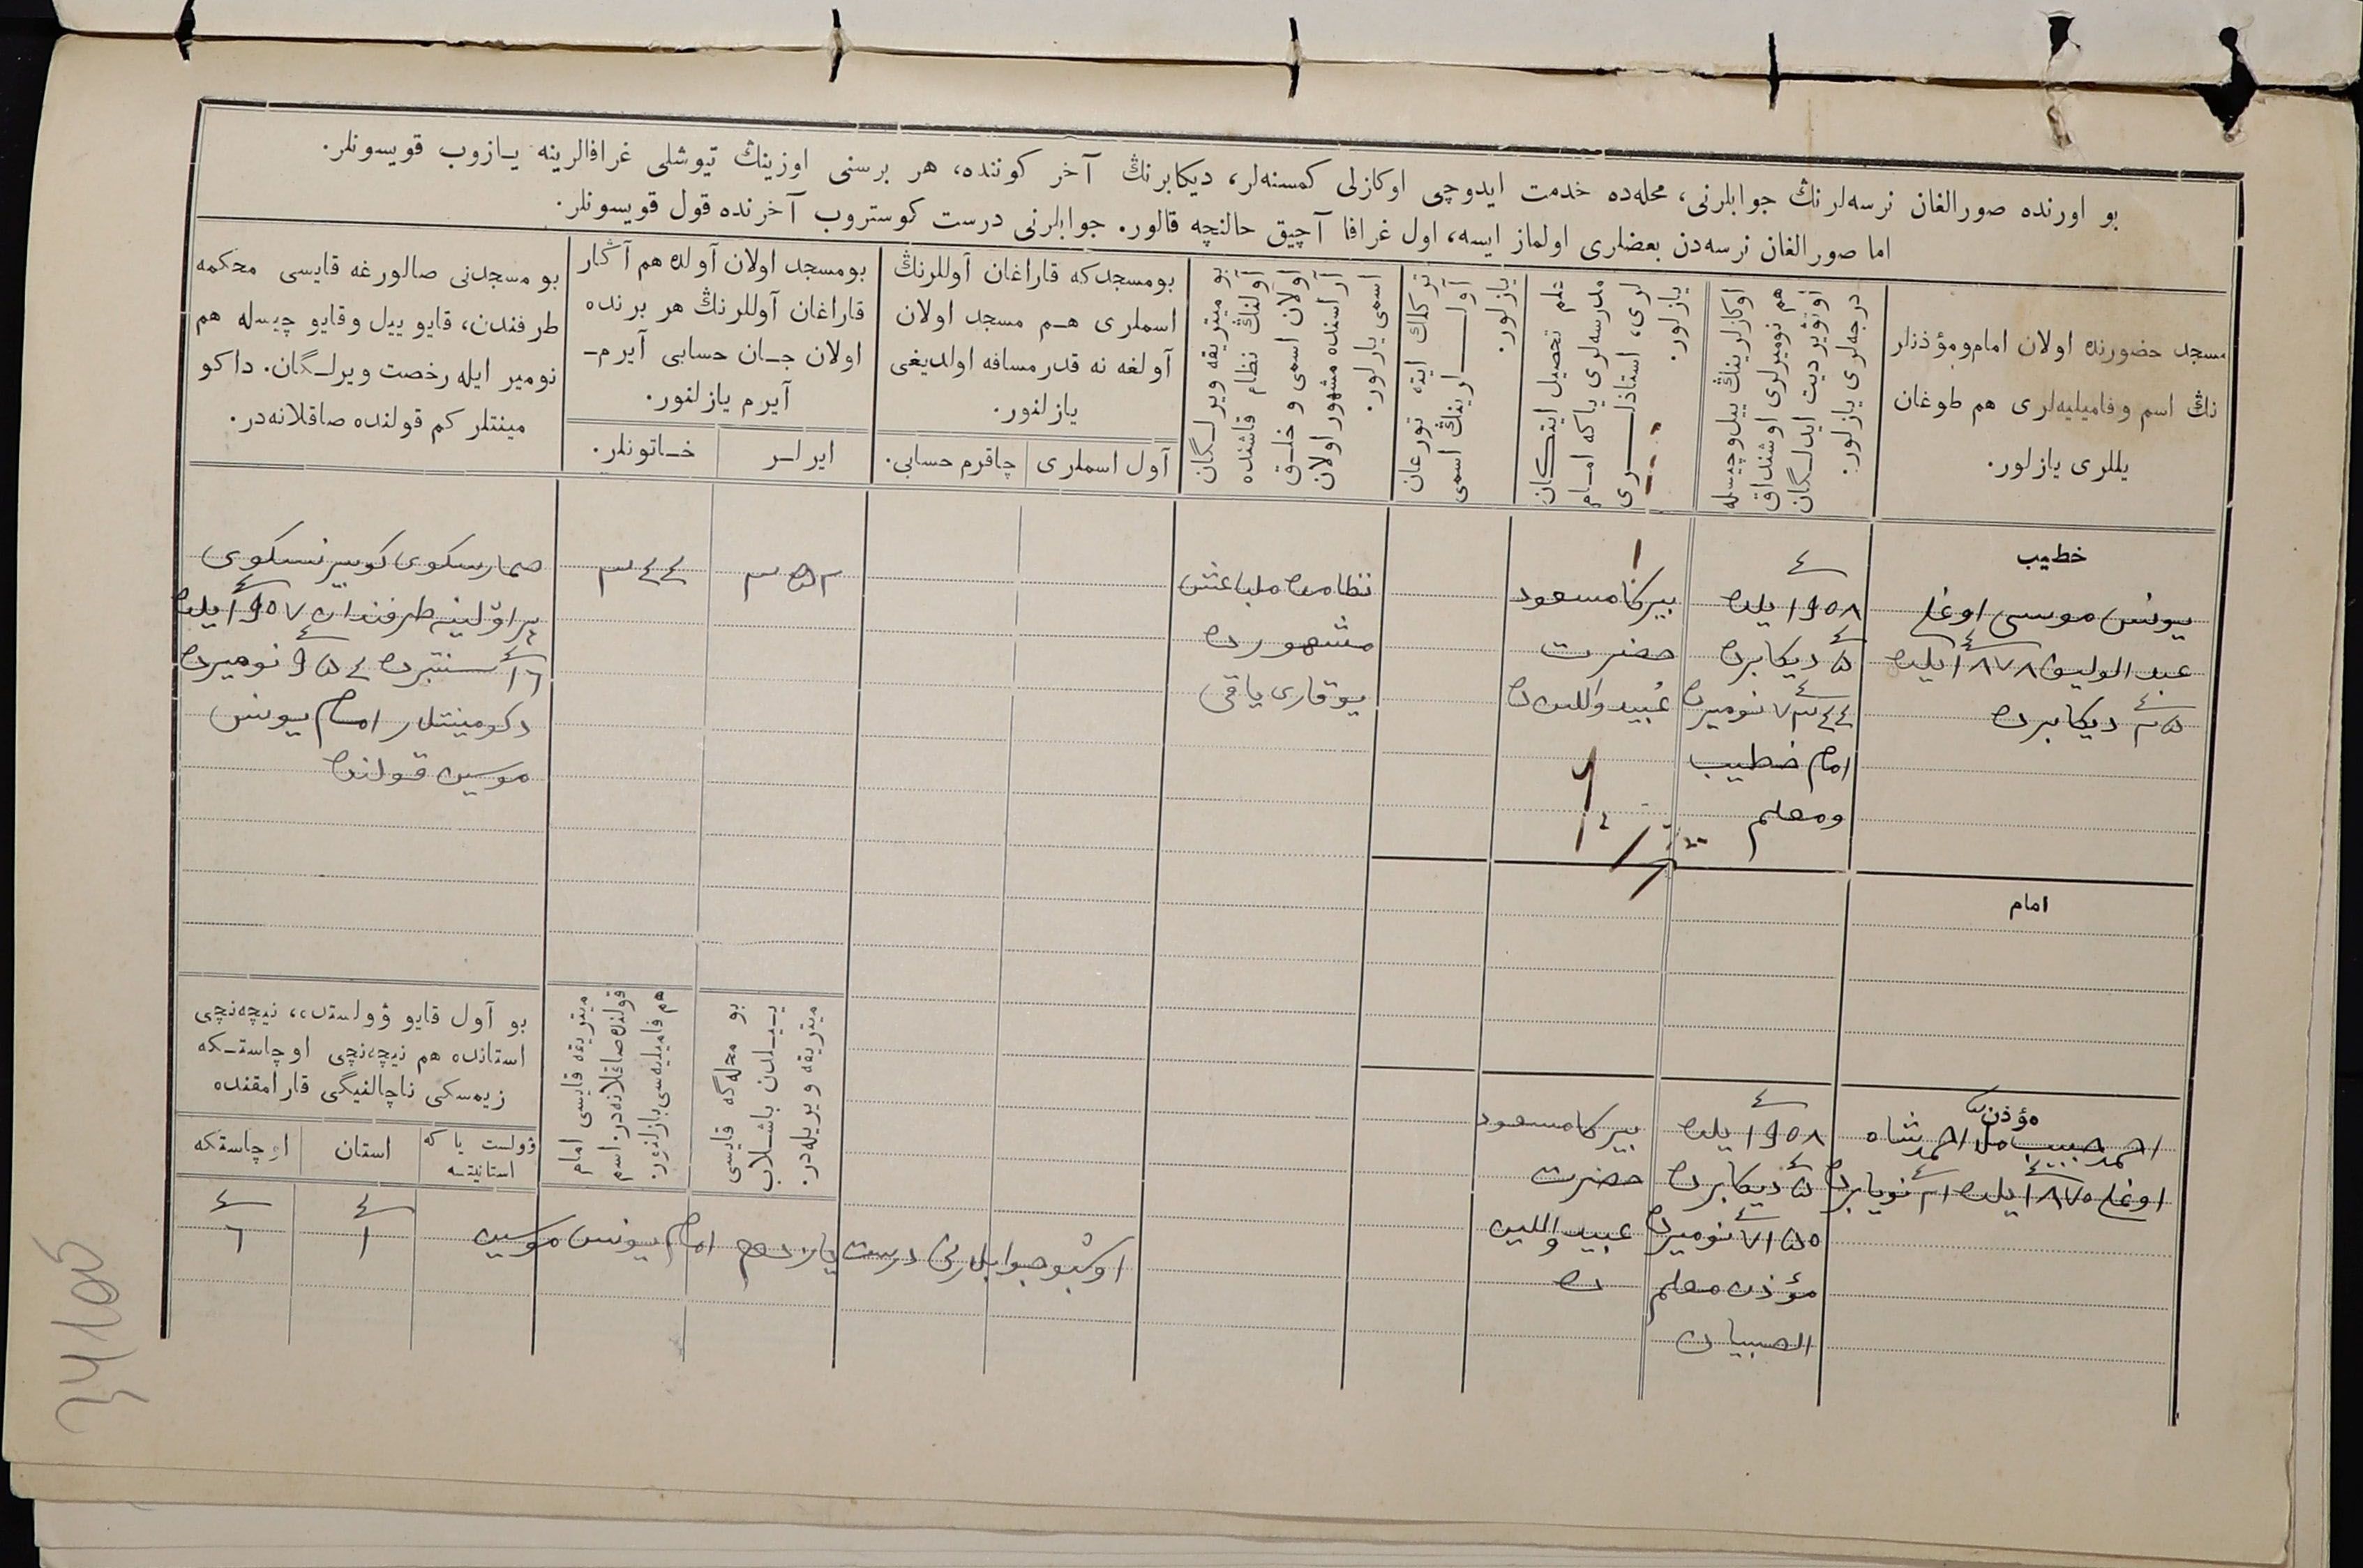 بو اورنده صورالغان نرسه‌لرنڭ جوابلرنی، محله‌ده خدمت ایدوچی اوکازلی کمسنه‌لر، دیکابرنڭ آخر کوننده، هر برسنی اوزینڭ تیوشلی غرافالرینه یازوب قویسونلر.
اما صورالغان نرسه‌دن بعضلری اولماز ایسه، اول غرافا آچیق حالنچه قالور. جوابلرنی درست کوستروب آخرنده قول قویسونلر.
مسجد حضورنده اولان امام و مؤذنلر
نڭ اسم و فامیلیه‌لری هم طوغان
یللری یازلور.
اوکازلرینڭ ییل و چیسله
هم نومیرلری اوشنداق
اوتوێردیت ایدلگان
درجه‌لری یازلور.
علم تحصیل ایتكان
مدرسه‌لری یا که امام
لری، استاذلری
یازلور.
ترکلك ایته تورغان
آوللرینڭ اسمی
یازلور.
بو میتریقه ویرلگان
آولنڭ نظام قاشنده
اولان اسمی و خلق
آراسنده مشهور اولان
اسمی یازلور.
بو مسجدکه قاراغان آوللرنڭ
اسملری هم مسجد اولان
آولغه نه قدر مسافه اولدیغی
یازلنور.
آول اسملری
چاقرم حسابی.
بو مسجد اولان آولده هم آڭار
قاراغان آوللرنڭ هر برنده
اولان جان حسابی آیرم-
آیرم یازلنور.
ایرلر
خاتونلر.
بو مسجدنی صالورغه قایسی محکمه
طرفندن، قایو ییل و قایو چیسله هم
نومیر ایله رخصت ویرلگان. داکو
مینتلر کم قولنده صاقلانه‌در.
خطیب
یونس موسی اوغلی
عبد الولیف ١٨٧٨ یلده
٢٥ دیکابرده
١٩٥٨ یلده
٥ دیکابرده
٧٣٤٤ نومیرده
امام خطیب
ومعلم
بیرکا مسعود
حضرت
عبیدوللین ده
نظامده ملباغش
مشهورده
یوقاری یاقی
٣٥٢
٣٤٤
صمارسکوی کوبیرنسکوی
پراولینیه طرفندان ١٩٥٧ یلده
١٦ سنتبرده ٩٥٤ نومیرده
دکومینتلر امام یونس
موسین قولنده
امام
مؤذن
احمد حبیب ملا احمدشاه
اوغلی ١٨٧٥ یلده ٢١ نویابرده
١٩٥٨ یلده
٥ دیکابرده
٧١٥٥ نومیرده
مؤذن معلم
الصبیان
بیرکا مسعود
حضرت
عبیدوللین
ده
بو محله‌گه قایسی
ییلدن باشلاب
میتریقه ویریله‌در.
میتریقه قایسی امام
قولنده صاقلانه‌در: اسم
هم فامیلیه‌سی یازلنور.
بو آول قایو ۋولستده، نیچه‌نچی
استانده هم نیچه‌نچی اوچاستکه
زیمسکی ناچالنیگی قارامقنده
ۋولست یا که استانیتسه
استان
اوچاستکه
١
٦
اوشبو جوابلرنی درست یازدم امام یونس موسین